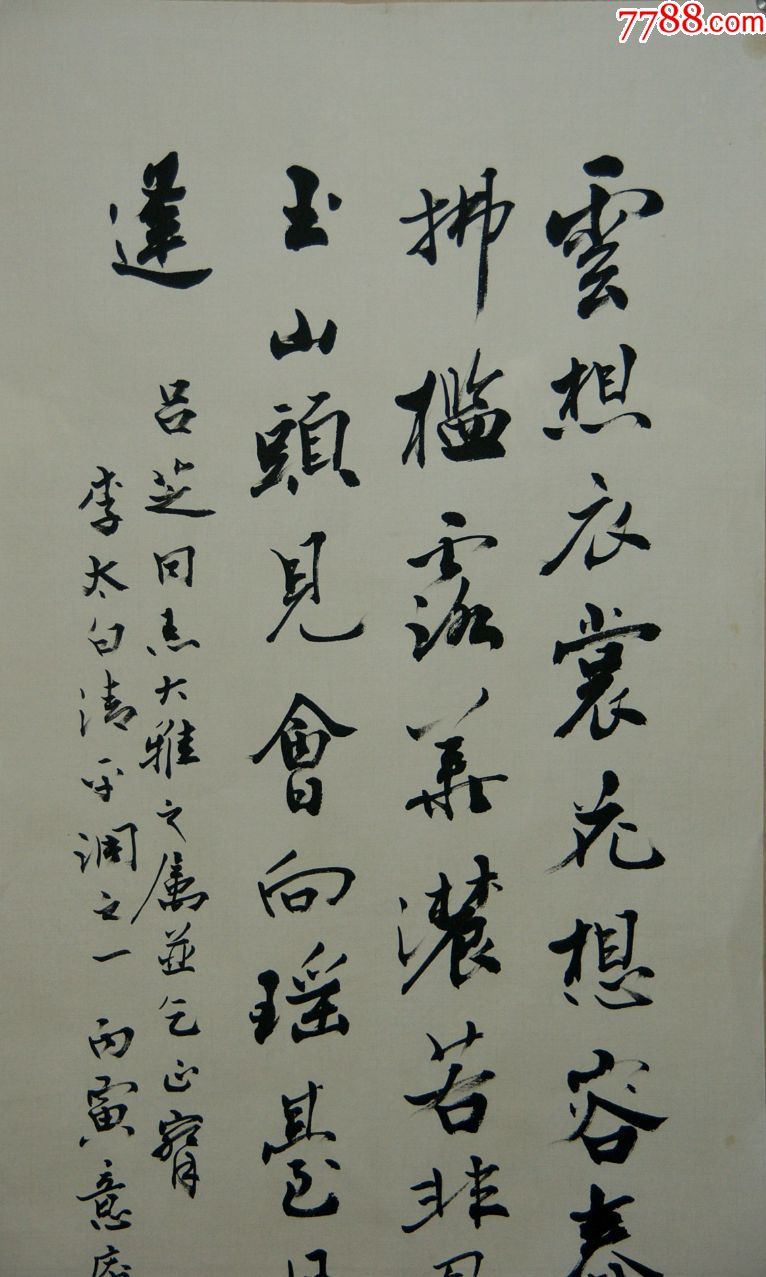 7788.com
雲想衣裳花想容春
拂檻露華濃若非
玉山頭見會向瑤臺月
逢
呂芝同志大雅之屬並乞正
李太白清平調之一 丙寅意